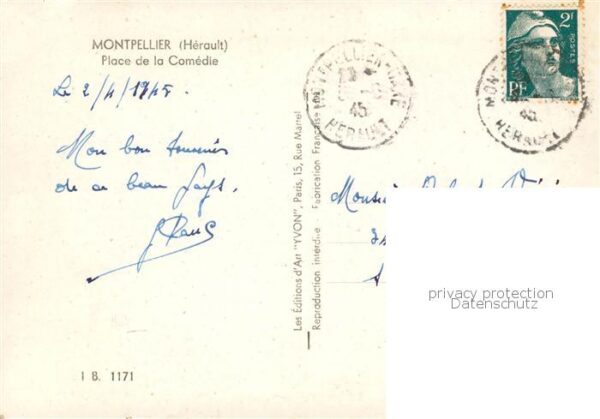 MONTPELLIER (Hérault)
Place de la Comédie
Le 2/4/1945
Mon bon souvenir
de ce beau pays.
I B. 1171
Les Editions d'Art "YVON", Paris, 15, Rue Martel
Reproduction interdite Fabrication Française
MONTPELLIER
45
HERAULT
2F
POSTES
RF
MONT
45
HERAULT
Monsieur
privacy protection
Datenschutz